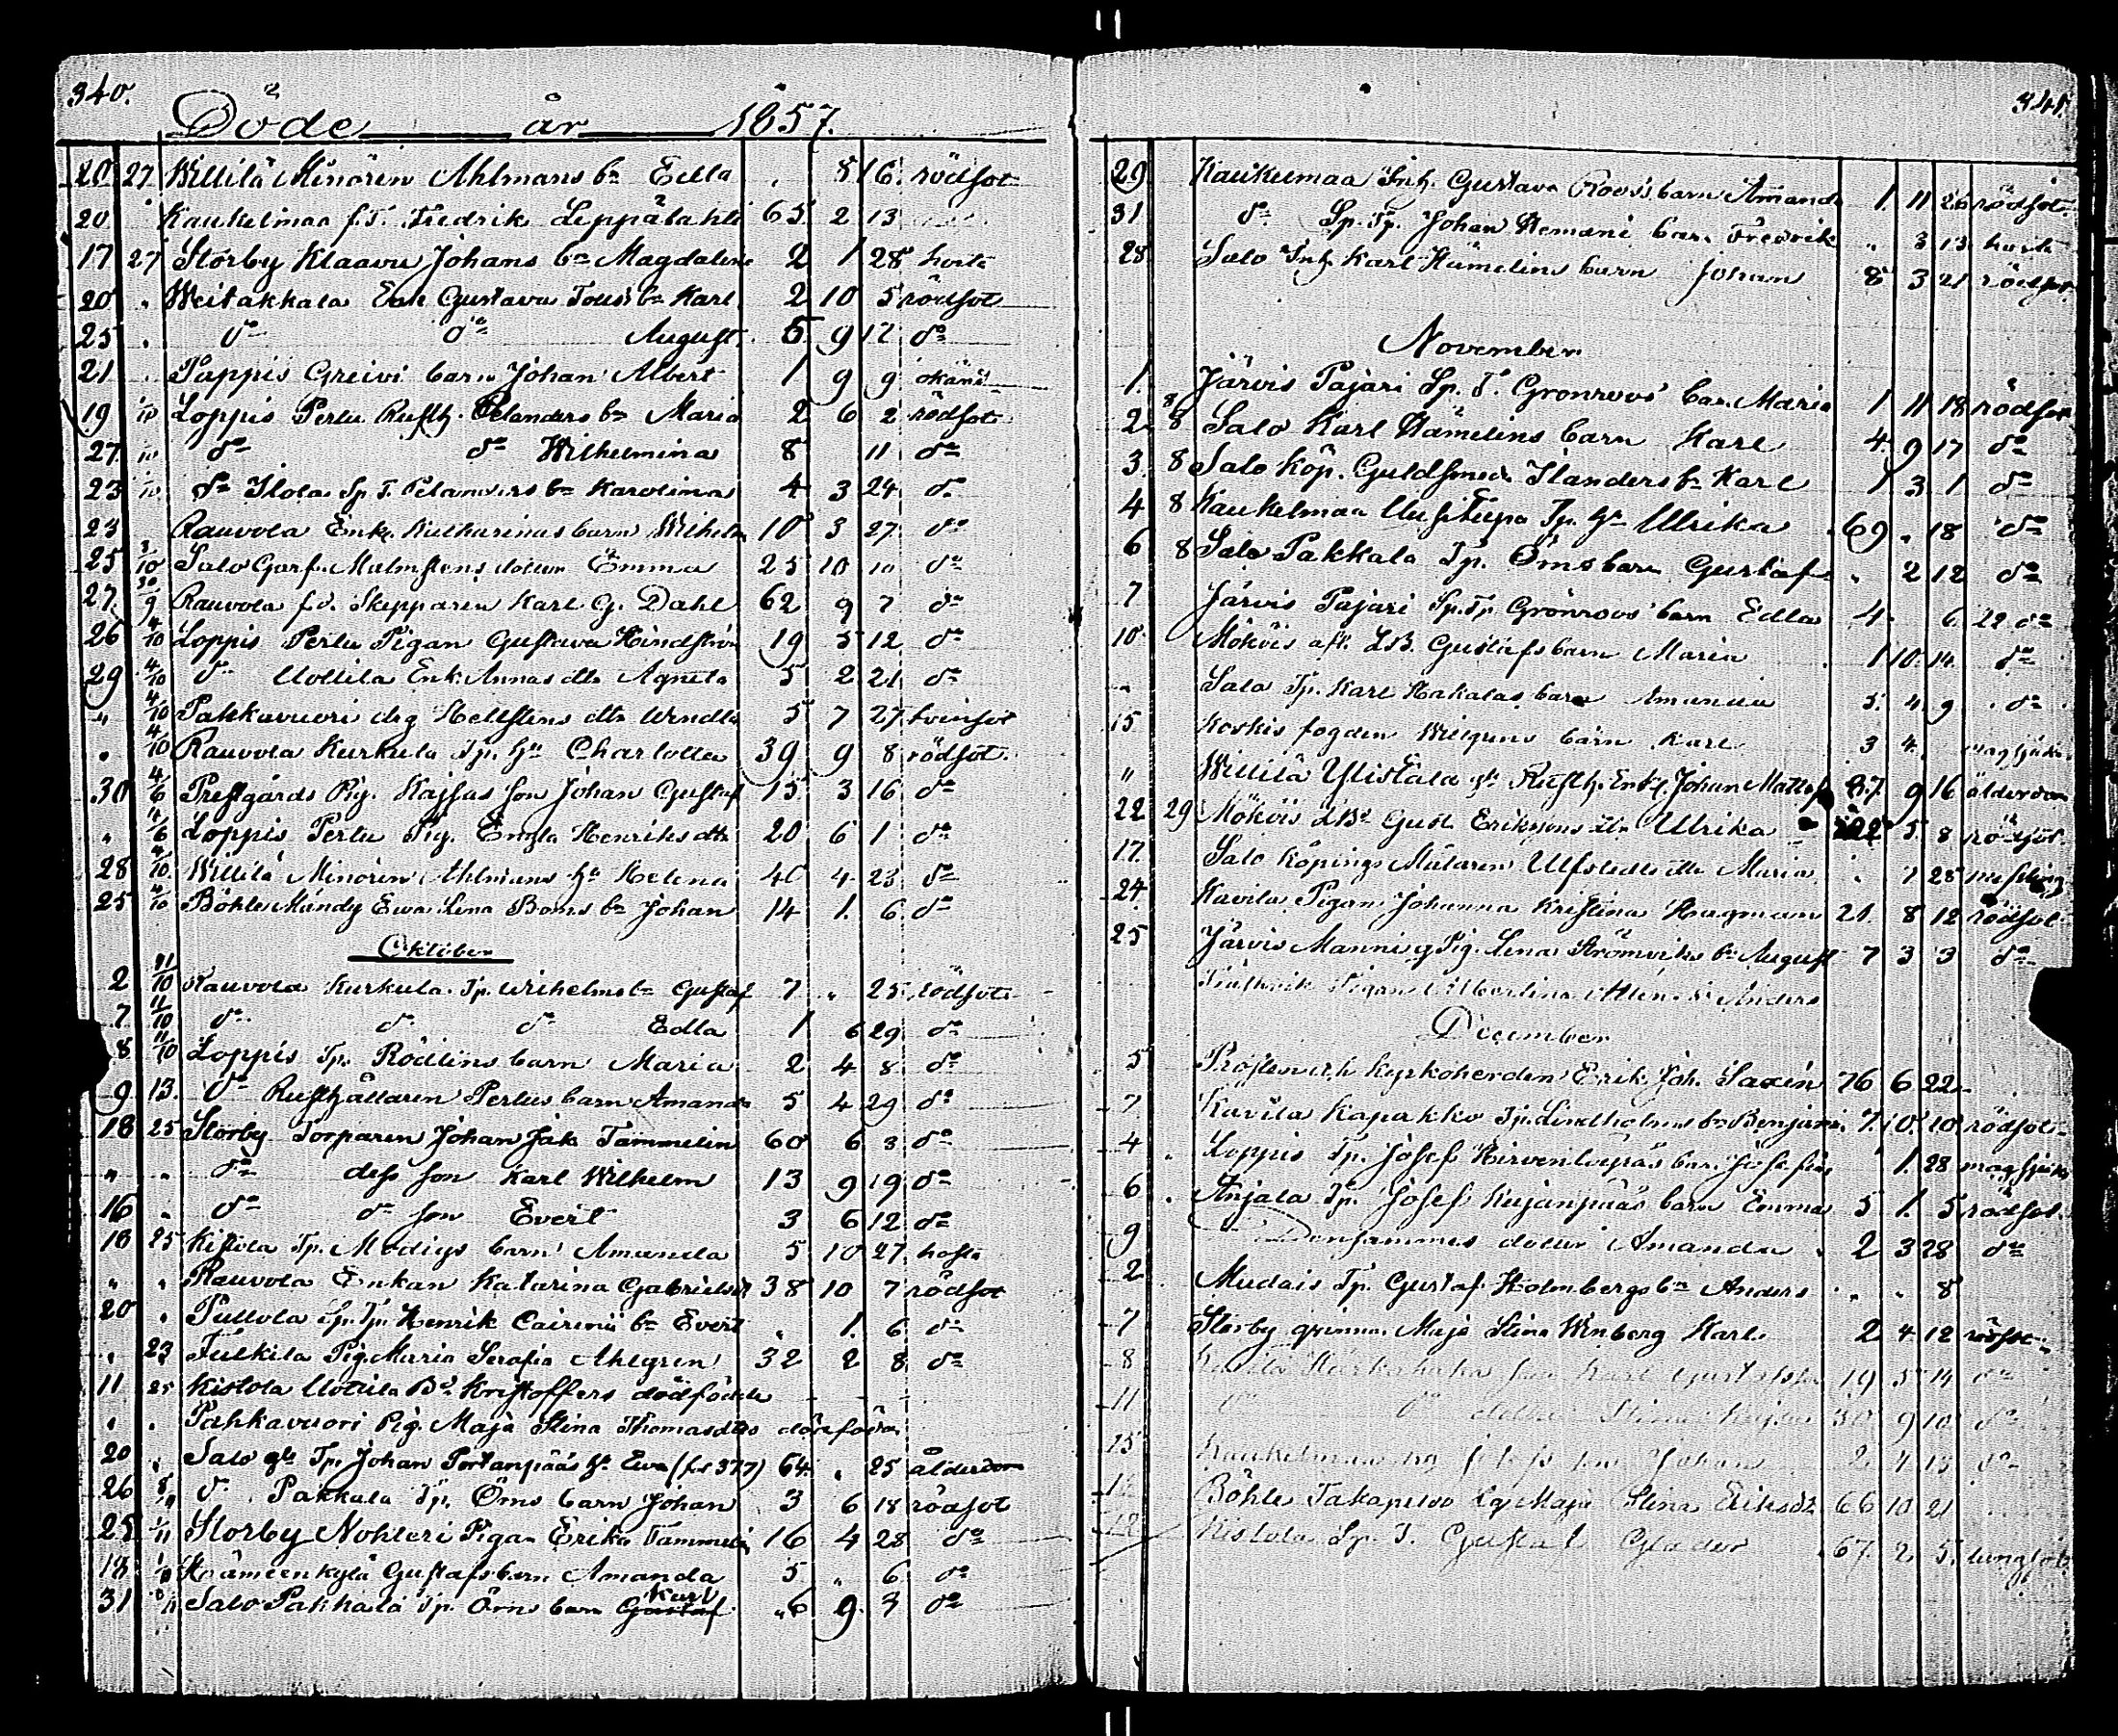 340.
Döde år 1857.
20 27 Willilä Minören Ahlmans bn Edla . 8 16 rödsot
20 Kaukelmaa f.T. Fredrik Leppälahti 65 2 13
17 27 Storby Klaavu Johans bn Magdalena 2 1 28 hosta
20 . Weitakkala Enk Gustava bn Karl 2 10 5 rödsot
25 . do do August 5 9 12 do
21 Pappis Greivi barn Johan Albert 1 9 9 okänd
19 Loppis Pertu Rusth. Pelanders bn Maria 2 6 2 rödsot
27 do do Wilhelmina 8 11 do
23 do Ilola Sp T. Pelanders bn Karolina 4 3 24 do
23 Rauvola Enk. Katharinas barn Wilhelm 10 3 27 do
25 3/10 Salo Garf. Malmstens dotter Emma 25 10 10 do
27 30/9 Rauvola f.d. Skepparen Karl G. Dahl 62 9 7 do
26 4/10 Loppis Pertu Pigan Gustava Hindström 19 5 12 do
29 4/10 do Uotila Enk Annas dtr Agneta 5 2 21 do
" 4/10 Pahkavuori drg Hellstens dtr Wendla 5 7 27
. 4/10 Rauvola Kurkula Tp. hu Charlotta 39 9 8 rödsot
30 4/6 Prestgårds Pig. Kajsas son Johan Gustaf 15 3 16 do
" 4/6 Loppis Pertu Pig. Engla Henriks dtr 20 6 1 do
28 4/10 Willilä Minören Ahlmans hu Helena 40 4 23 do
25 4/10 Böhle Mändy Ewa Lena Boms bn Johan 14 1 6 do
Oktober
2 11/10 Rauvola Kurkula Tp. Wilhelms bn Gustaf 7 " 25 rödsot
7 11/10 do do do Edla 1 6 29 do
8 11/10 Loppis Tp. Rödlins barn Maria 2 4 8 do
9 13. do Rusthållaren Pertus barn Amanda 5 4 29 do
18 25 Storby Torparen Johan Jak Tammelin 60 6 3 do
" " do dess son Karl Wilhelm 13 9 19 do
16 " do do son Evert 3 6 12 do
18 25 Kistola Tp. Modigs barn Amanda 5 10 27 hosta
" " Rauvola Enkan Katarina Gabrielsdr 38 10 7 rödsot
20 . Pullola Sp. Tp. Henrik Cairenii bn Evert . 1 6 do
. 23 Tulkila Pig. Maria Serafia Ahlgren 32 2 8 do
11 25 Kistola Uotila Bd Kristoffers dödfödde
. . Pahkavuori Pig. Maja Stina Thomasdtrs dödfödda
20 . Salo gla Tp. Johan Portanpääs hu Ewa (fol 377) 64 . 25 ålderdom
26 do Pakkala Tp. Örns barn Johan 3 6 18 rödsot
25 Storby Nohteri Pigan Erika Tammelin 16 4 28 do
18 Hrämeenkylä Gustafs barn Amanda 5 " 6 do
31 Salo Pakkala Tp. Örns barn Karl "6 9 3 do
341.
29 Kaukelmaa Inh. Gustava Roos's barn Amanda 1 11 26 rödsot
31 do Sp. Tp. Johan Nemani barn Fredrik " 3 13 hosta
28 Salo Inh Karl Hämelins barn Johan 8 3 21 rödsot
November
1. Järvis Pajari Sp. T. Grönroos' barn Maria 1 11 18 rödsot
2 8 Salo Karl Hämelins barn Karl 4 9 17 do
3. 8 Salo Köp. Guldsmed Ilanders bn Karl 1 3 1 do
4 8 Kaukelmaa Uusitupa Tp. hu Ulrika 69 " 18 do
6 8 Salo Pakkala Tp. Örns barn Gustaf " 2 12 do
7 Järvis Pajari Sp. Tp Grönroos' barn Edla 4 6 22 do
10 Mökvis afl. LB. Gustafs barn Maria 1 10 14 do
Salo Tp. Karl Hakalas barn Amanda 5 4 9 do
15 Koskis fogden Willgrens barn Karl 3 4 magsjuka
" Willilä Ylistalo Rusth. Johan Matts 87 9 16 ålderdom
22 29 Mökvis LBd Gust. Erikssons dtr Ulrika 22 5 8 rödsot
17 Salo Köpings Målaren Ulfstedts dtr Maria . 7 28
24 Kavila Pigan Johanna Kristina Hagman 21 8 12 rödsot
25 Järvis Manni g Pig. Lena Strömviks bn August 7 3 3 do
Pigan Albertina bn Anders
December
5 Prosten och kyrkoherden Erik Joh. Saxén 76 6 22
7 Kavila Kapakko Tp. Lindholms bn Benjamin 7 10 10 rödsot
4 Loppis Tp. Josef Hirvenlojäs barn Josefina 1 28 magsjuka
6 Anjala Tp. Josef Kujanpääs barn Emma 5 1 5 rödsot
9 Densammes dotter Amanda 2 3 28 do
2 Mudais Tp. Gustaf Holmbergs bn Anders " " 8
7 Storby qvinna Maja Stina Winberg Karl 2 4 12 rödsot
8 son Karl Gustafsson 19 5 14 do
11 do do dotter Stina Kajsa 30 9 10 do
15 Kaukelmaa son Johan 2 4 15 do
Böhle Takapelto Maja Stina Eriksdr 66 10 21
Kistola Sp. T. Gustaf Glader 67 2 5 lungsot